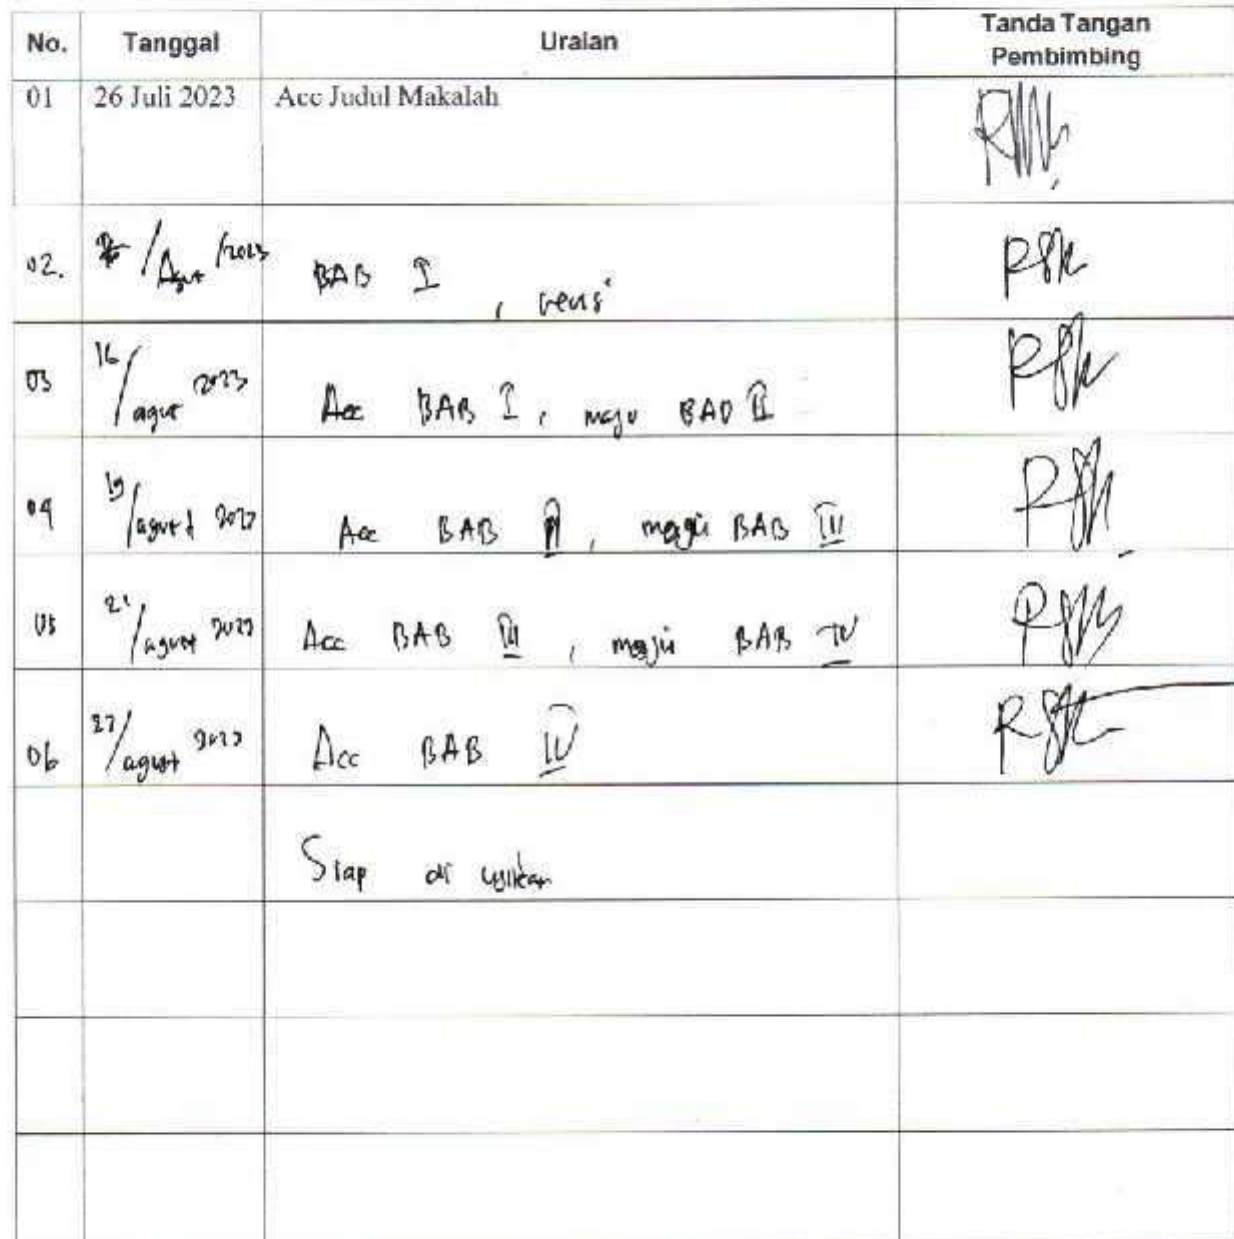 No. Tanggal Uraian Tanda Tangan
Pembimbing
01 26 Juli 2023 Acc Judul Makalah
02. /Agut /2023 BAB I , revisi
03 16/agut 2023 Acc BAB I , maju BAB II
04 19/agust 2023 Acc BAB II , maju BAB III
05 21/agust 2023 Acc BAB III , maju BAB IV
06 27/agust 2023 Acc BAB IV
Siap di ujikan